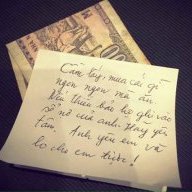 Cầm lấy, mua cái gì
ngon ngon mà ăn
Nếu thiếu bảo họ ghi vào
sổ nợ của anh. Hãy yên
tâm, Anh yêu em và
lo cho em được!